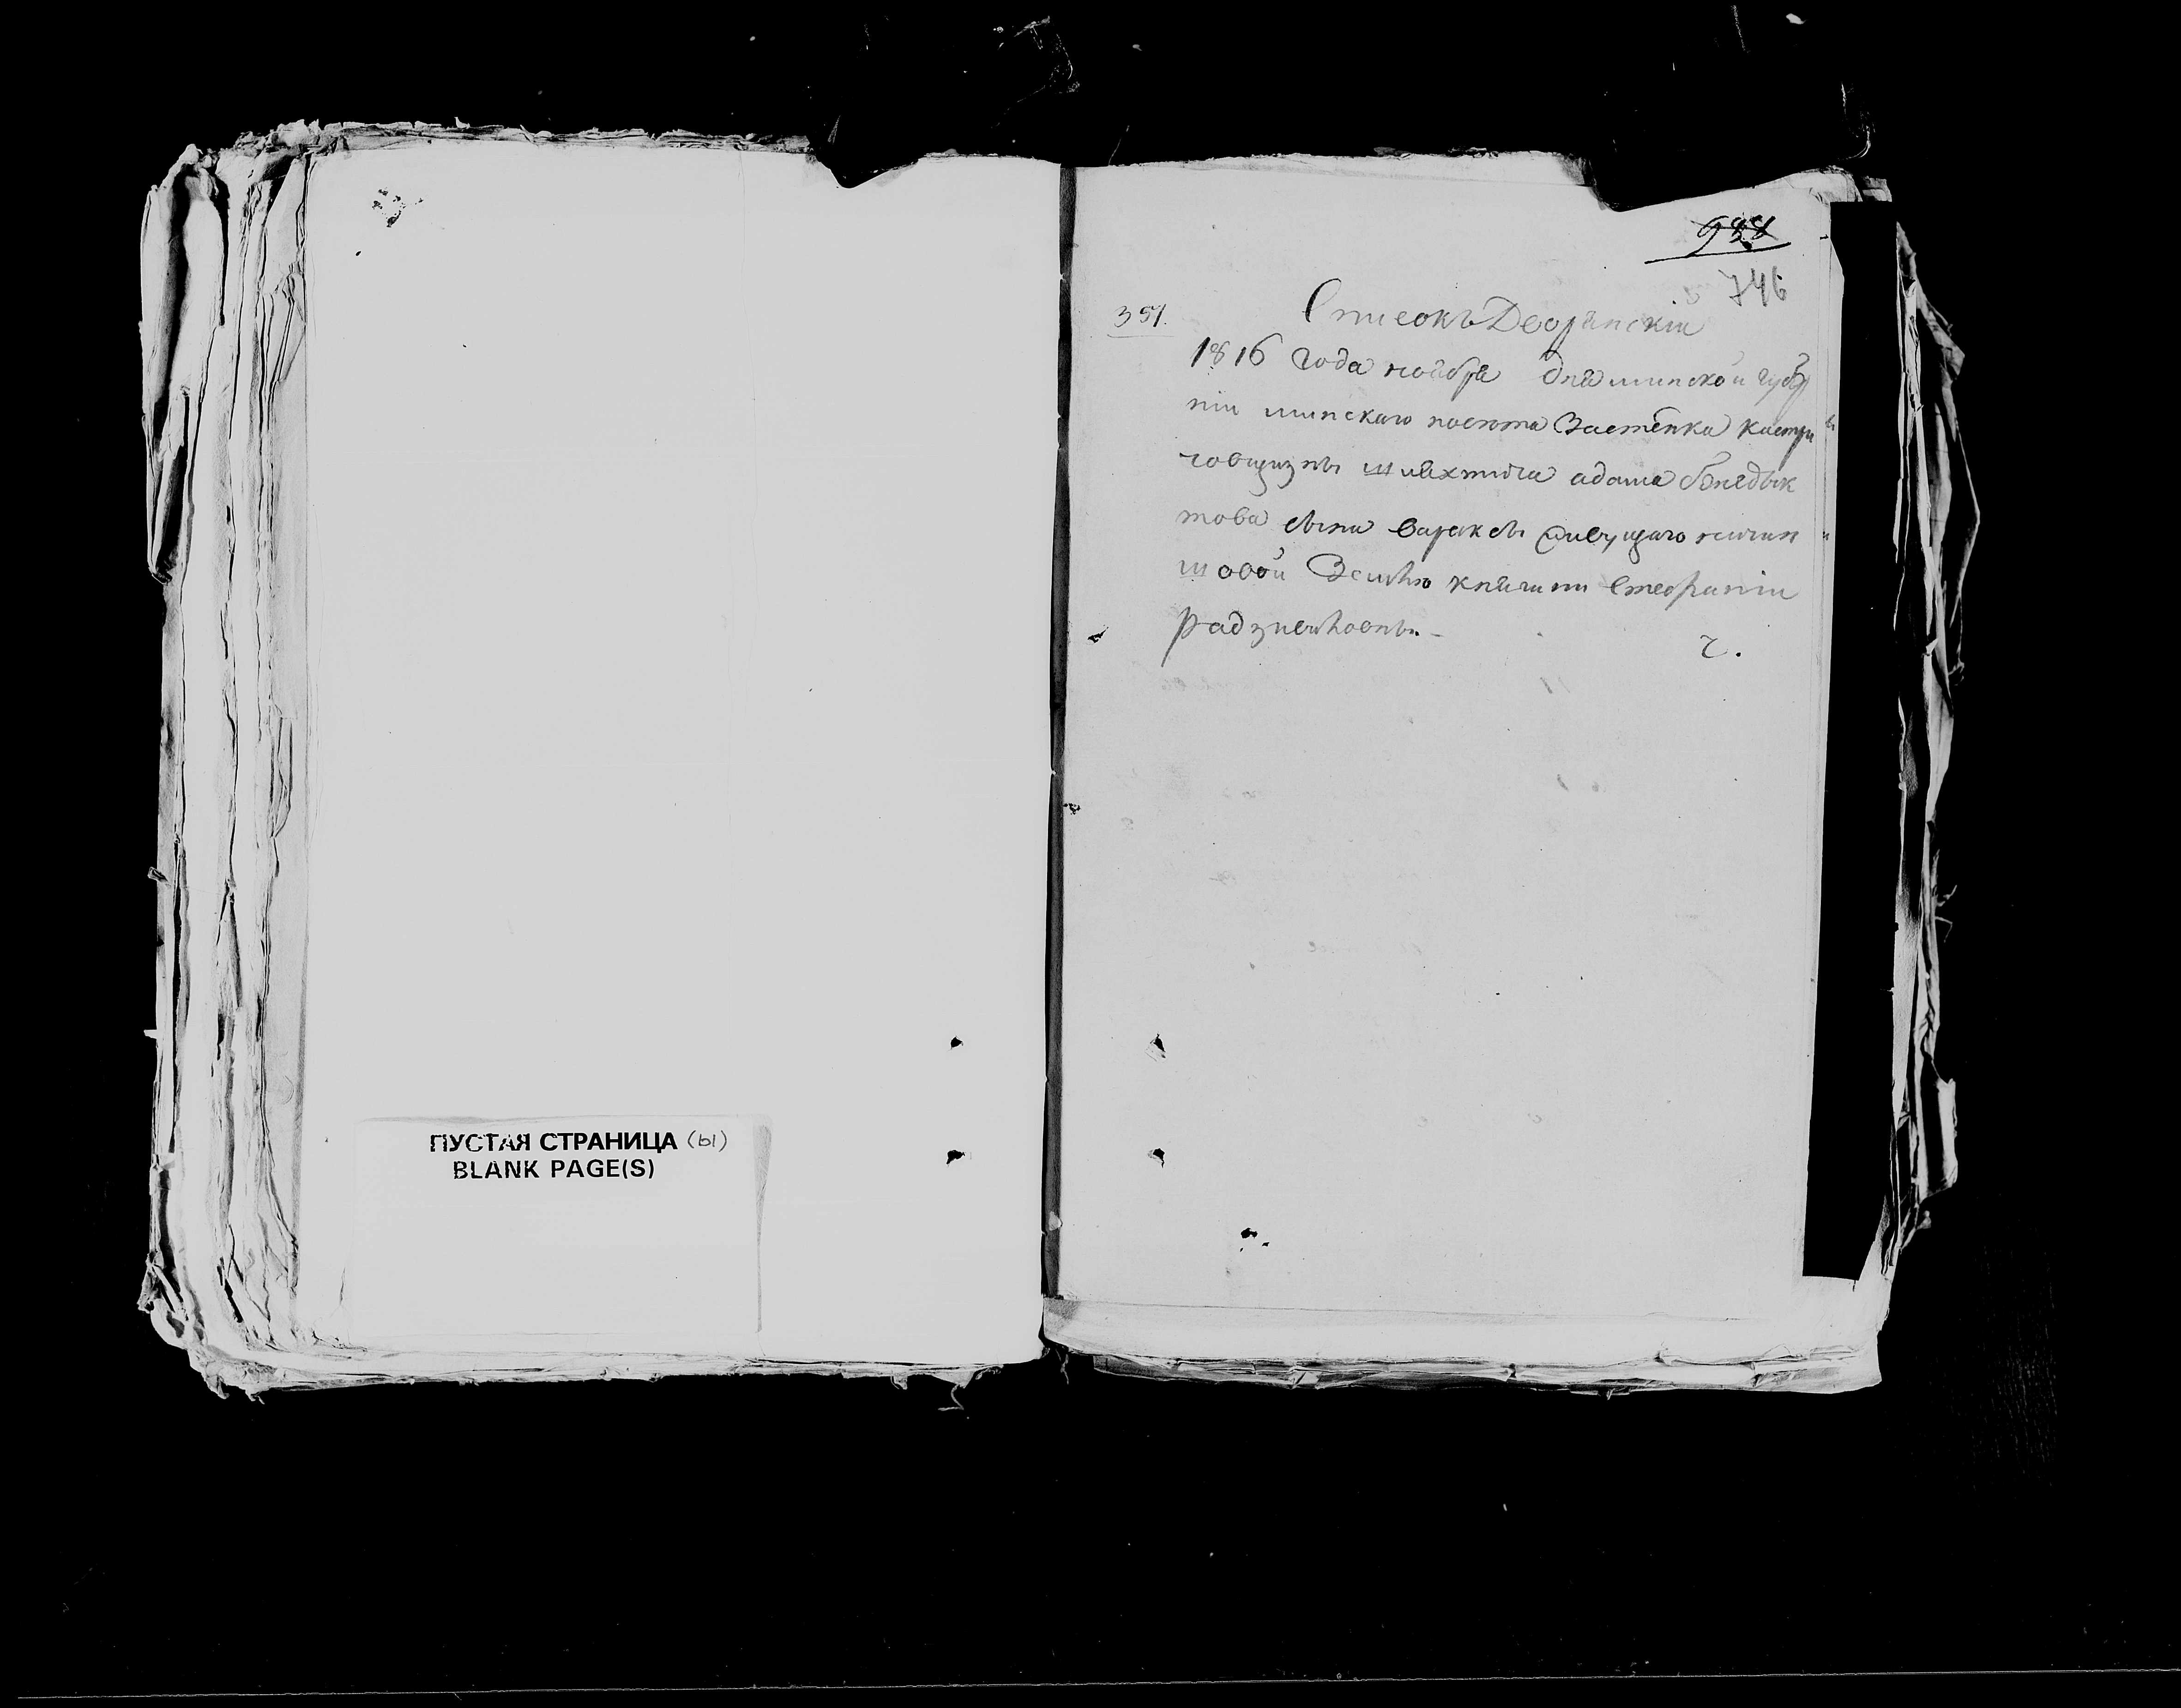 ПУСТАЯ СТРАНИЦА (ы)
BLANK PAGE(S)
938
746
351.
Списокъ Дворянскій
1816 года ноября дня минской губер
ніи минскаго повета Застенка Кастри
човщизны шляхтича адама бенедык
това сына Вараксы живущаго начин
шовой Землѣ княгини Стефаніи
Радзивиловны.
2.